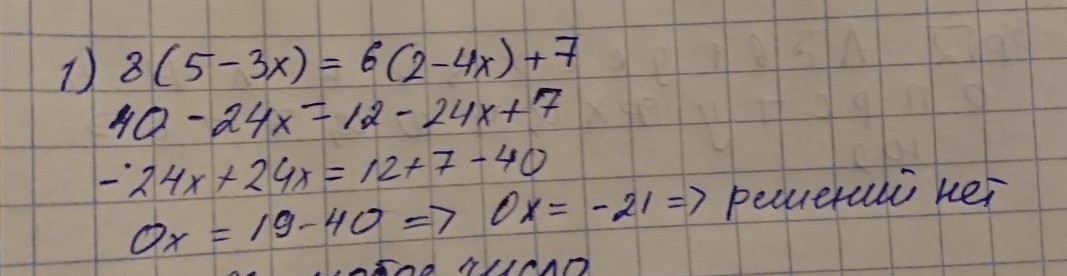 1) 8(5-3x) = 6(2-4x)+7
40-24x = 12-24x+7
-24x+24x = 12+7-40
0x = 19-40 => 0x = -21 => решений нет
число